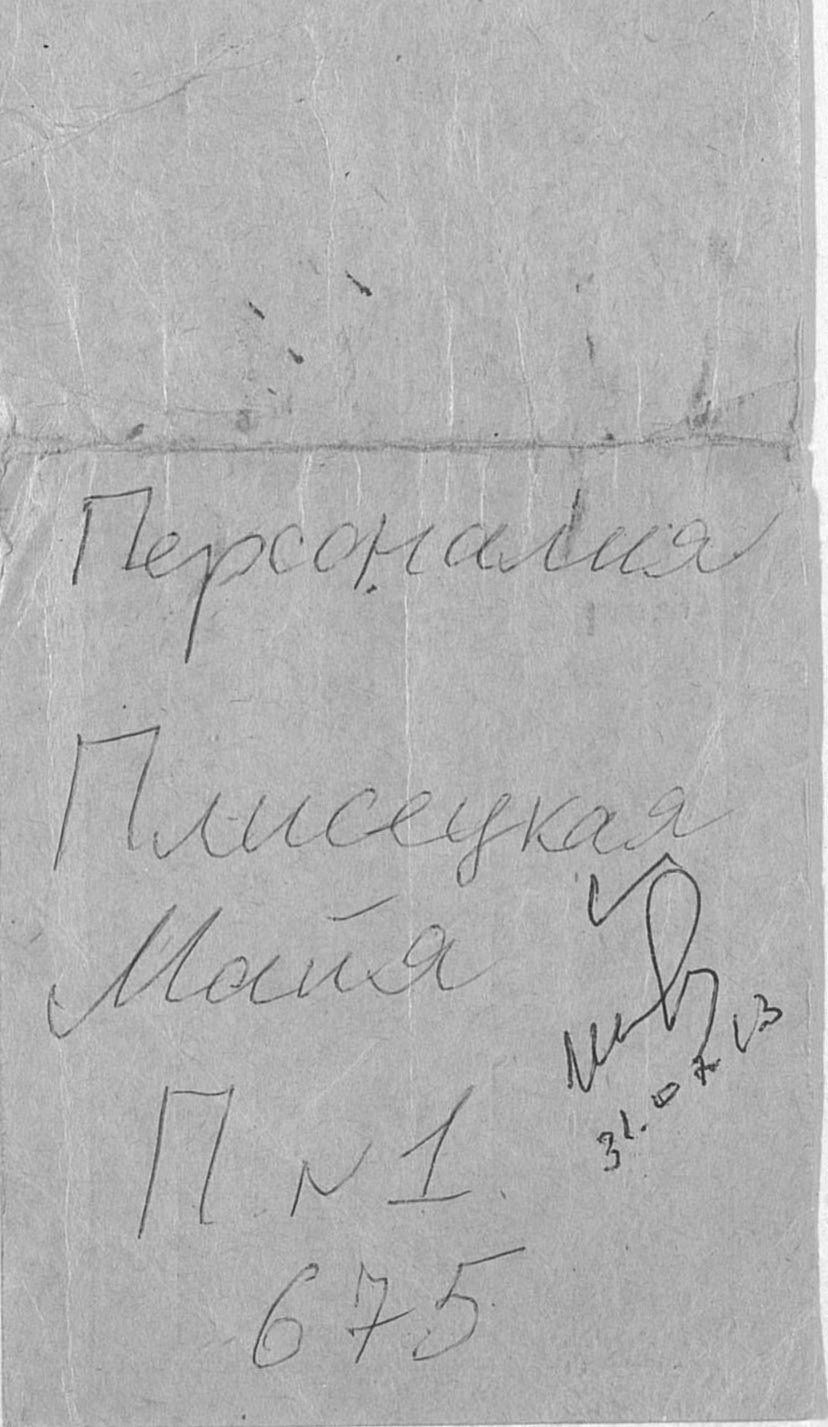 Персоналия
Плисецкая
Майя
П N 1
675
31.07.13